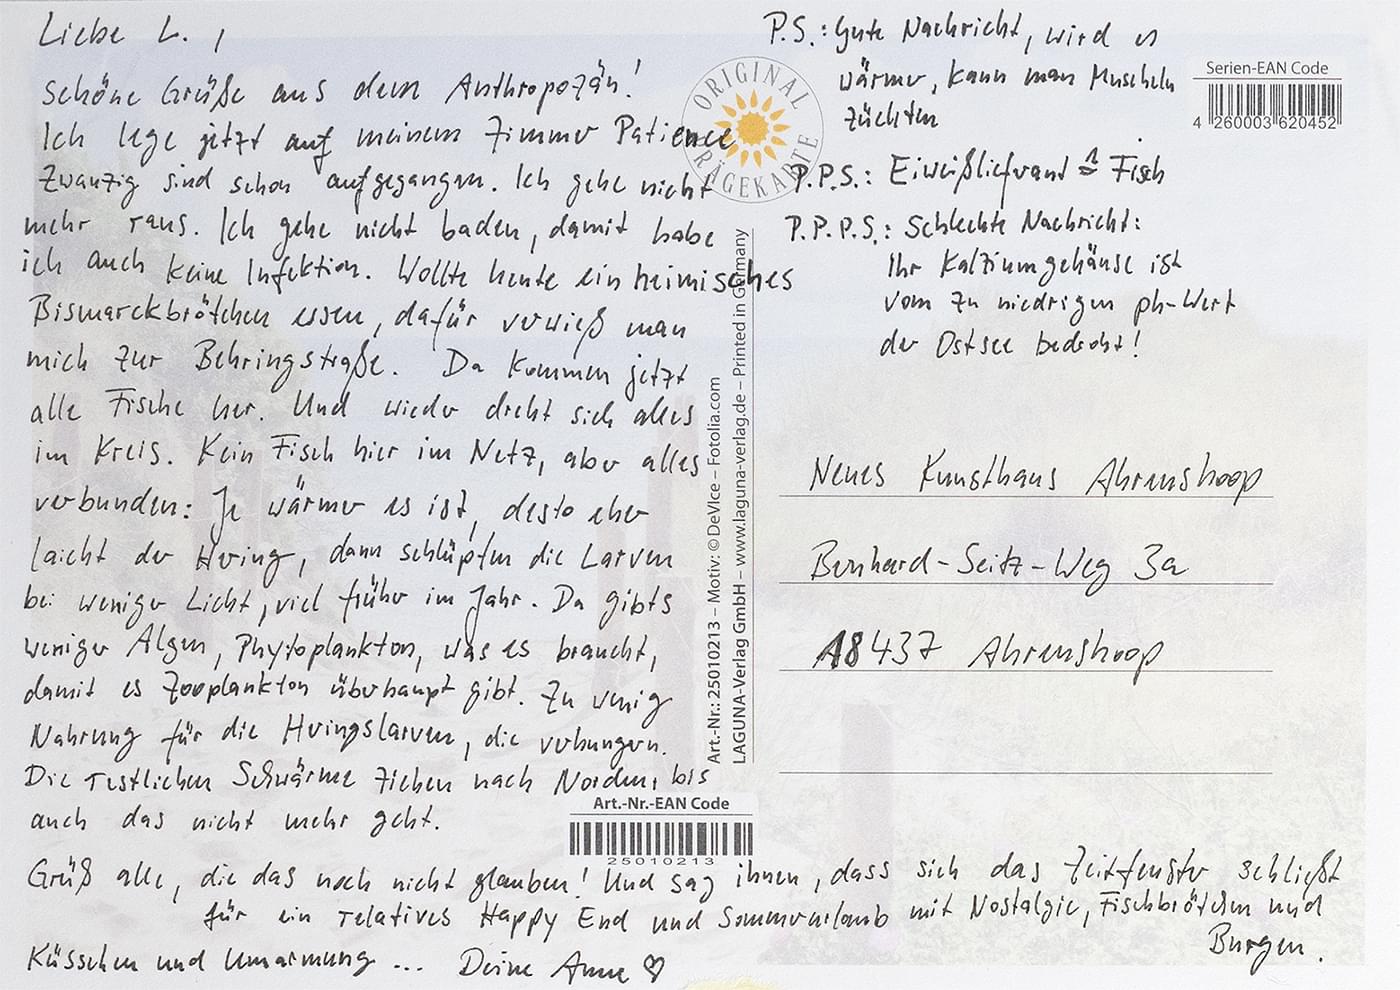 Liebe L.,
schöne Grüße aus dem Anthropozän!
Ich lege jetzt auf meinem Zimmer Patience
Zwanzig sind schon aufgegangen. Ich gehe nicht
mehr raus. Ich gehe nicht baden, damit habe
ich auch keine Infektion. Wollte heute ein heimisches
Bismarckbrötchen essen, dafür verwieß man
mich zur Behringstraße. Da kommen jetzt
alle Fische her. Und wieder dreht sich alles
im Kreis. Kein Fisch hier im Netz, aber alles
verbunden: Je wärmer es ist, desto eher
laicht der Hering, dann schlüpfen die Larven
bei weniger Licht, viel früher im Jahr. Da gibts
weniger Algen, Phytoplankton, was es braucht,
damit es Zooplankton überhaupt gibt. Zu wenig
Nahrung für die Heringslarven, die verhungern.
Die restlichen Schwärme ziehen nach Norden, bis
auch das nicht mehr geht.
Grüß alle, die das noch nicht glauben! Und sag ihnen, dass sich das Zeitfenster schließt
für ein relatives Happy End und Sommerurlaub mit Nostalgie, Fischbrötchen und
Burgen.
Küsschen und Umarmung ... Deine Anne ♡
P.S.: Gute Nachricht, wird es
wärmer, kann man Muscheln
züchten
P.P.S.: Eiweißlieferant ≙ Fisch
P.P.P.S.: Schlechte Nachricht:
Ihr Kalziumgehäuse ist
vom zu niedrigen ph-Wert
der Ostsee bedroht!
ORIGINAL
PRÄGEKARTE
Serien-EAN Code
4 260003 620452
Art.-Nr.: 25010213 – Motiv: © DeVIce – Fotolia.com
LAGUNA-Verlag GmbH – www.laguna-verlag.de – Printed in Germany
Neues Kunsthaus Ahrenshoop
Bernhard-Seitz-Weg 3a
18437 Ahrenshoop
Art.-Nr.-EAN Code
25010213